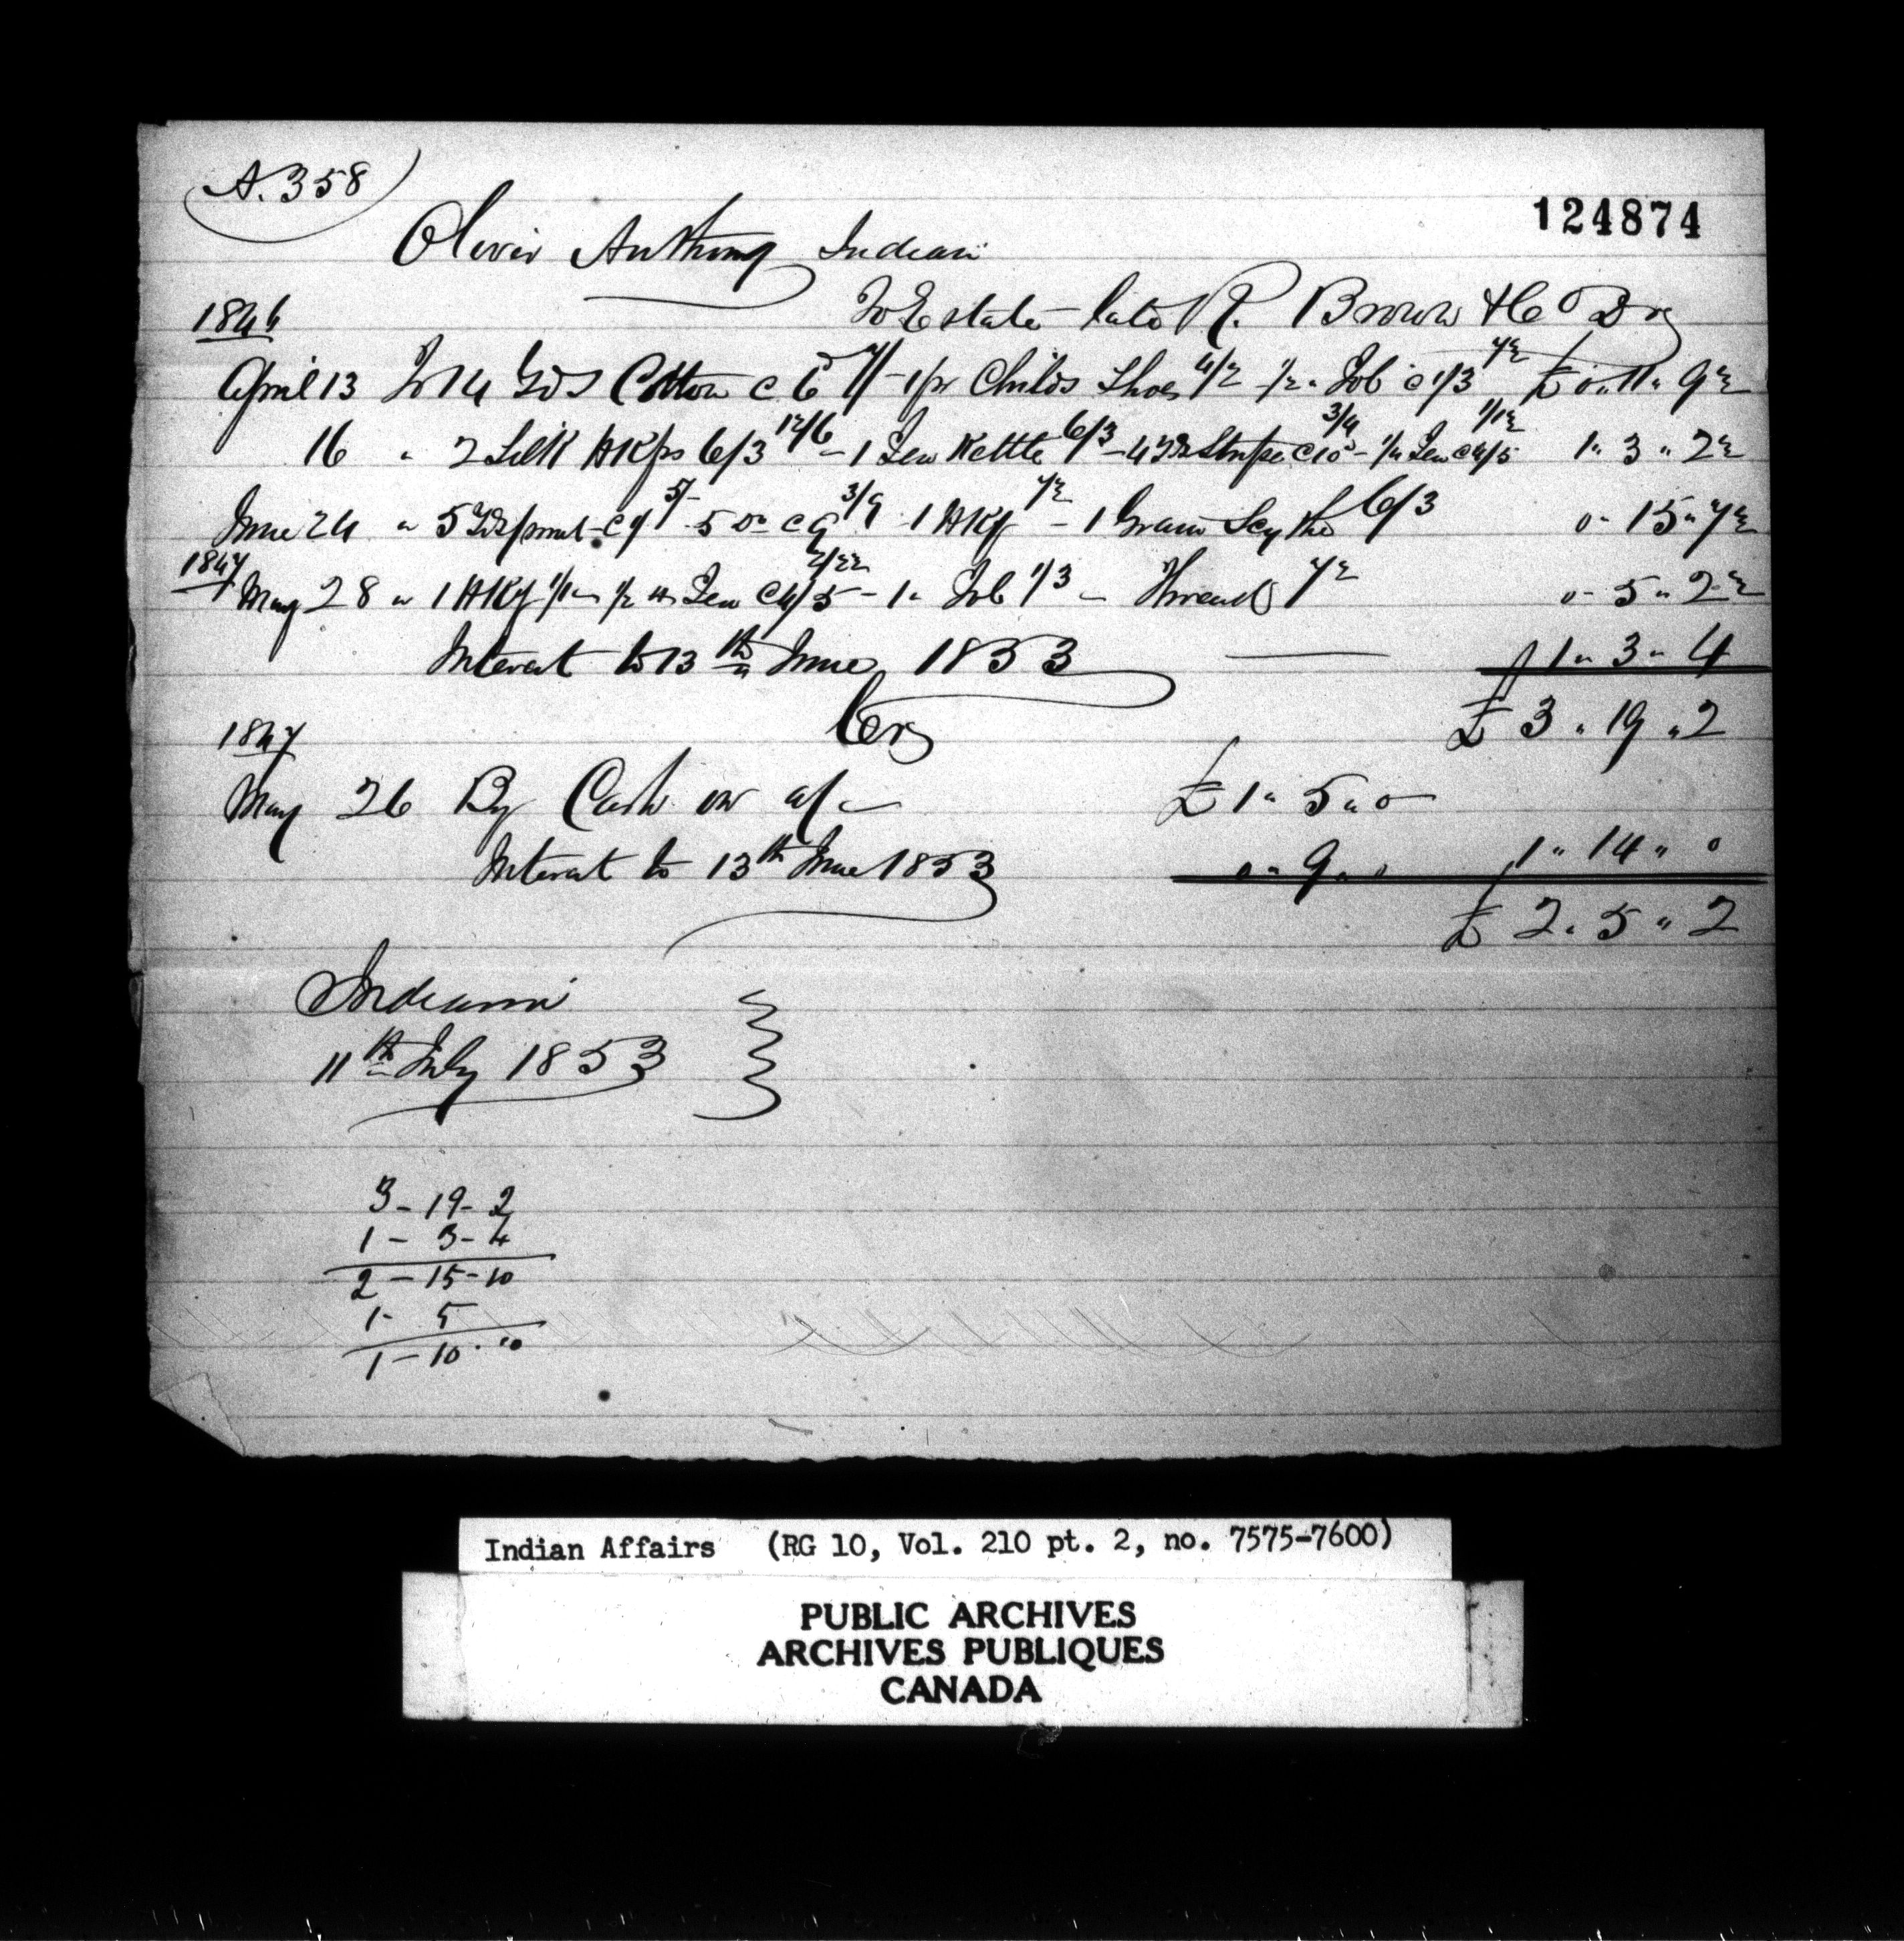 A. 358
124874
Oliver Anthony Indian
1846 To Estate late R. Brown & Co Dr
April 13 To 14 Yds Cotton c 6 7/- 1 pr Childs Shoes 4/2 1/2 " Tob c 1/3 7½ £ 0 " 11 " 9½
16 " 2 Silk HKfs 6/3 12/6 - 1 Tea Kettle 6/3 - 4 Yds Stripe c 10 3/4 - 1/4 Tea c 4/5 1/1½ 1 " 3 " 2½
June 24 " 5 Yds print c 1/ 5/- 5 Do c 9 3/9 1 HKf 7½ - 1 Grain Scythe 6/3 0 " 15 " 7½
1847 May 28 " 1 HKf 1/1 - 1/2 lb Tea c 4/5 2/2½ - 1 " Tob 1/3 - Thread 7½ 0 " 5 " 2½
Interest to 13th June 1853 — 1 " 3 " 4
£ 3 " 19 " 2
Crs
1847
May 26 By Cash on a/c £ 1 " 5 " 0
Interest to 13th June 1853 0 " 9 " 0 1 " 14 " 0
£ 2 " 5 " 2
Indiana
11th July 1853
3 - 19 - 2
1 - 3 - 4
2 - 15 - 10
1 - 5
1 - 10 - 10
Indian Affairs (RG 10, Vol. 210 pt. 2, no. 7575-7600)
PUBLIC ARCHIVES
ARCHIVES PUBLIQUES
CANADA